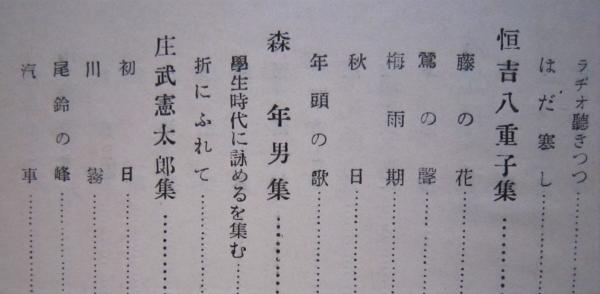 ラヂオ聽きつつ…………
はだ塞し…………
恒吉八重子集…………
藤の花…………
鶯の聲…………
梅雨期…………
秋日…………
年頭の歌…………
森年男集…………
學生時代に詠めるを集む…
折にふれて…………
庄武憲太郎集…………
初日…………
川霧…………
尾鈴の峰…………
汽車…………